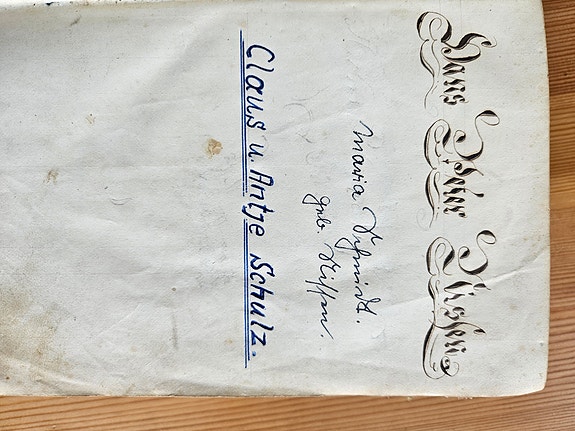 Hans Peter
Maria Schmidt.
geb.
Claus u. Antje Schulz.